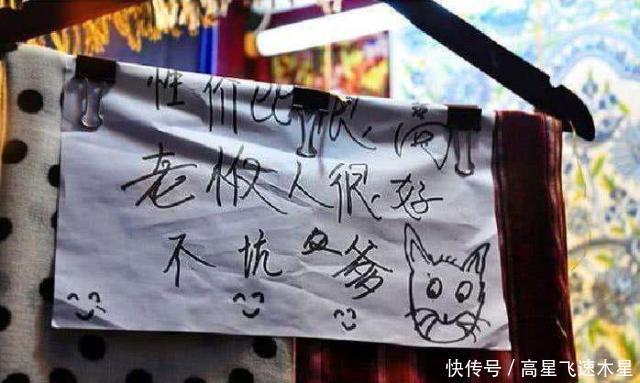 性价比很高
老板人很好
不坑爹
快传号/高星飞速木星